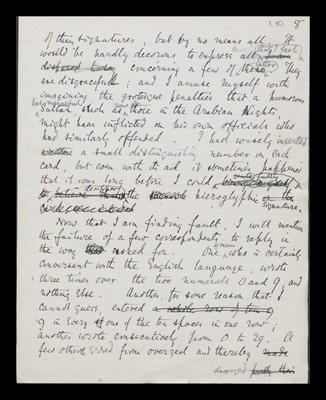 8
of their signatures, but by no means all. It
would be hardly decorous to express all that I feel
concerning a few of these. They
are disgraceful; and I amuse myself with
imagining the grotesque penalties that a humorous
Sultan such as those in the Arabian Nights,
might have inflicted on his own officials who
had similarly offended. I had wisely inserted
a small distinguishing number on each
card, but even with its aid it sometimes happened
that it was long before I could
the hieroglyphic
signature.
Now that I am finding fault, I will mention
the failure of a few correspondents to reply in
the way asked for. One, who is certainly
conversant with the English language, wrote
three times over the two numerals 0 and 9, and
nothing else. Another, for some reason that I
cannot guess, entered a whole row of ten
9 in every one of the ten spaces in one row;
another wrote consecutively from 0 to 29. A
few others erred from overzeal and thereby made
damaged their